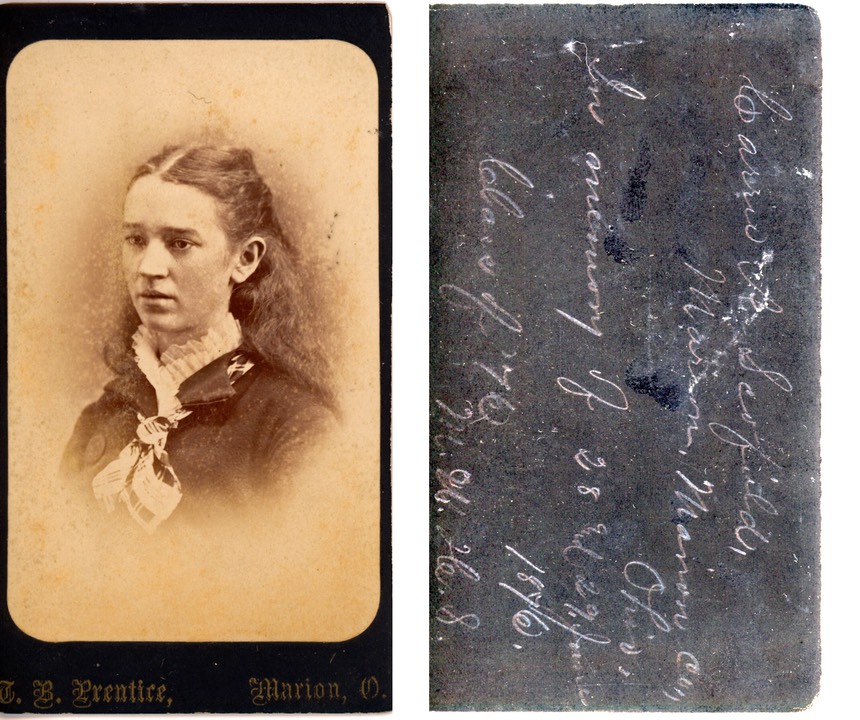 T. B. Prentice, Marion, O.
Carrie S. Scofield,
Marion, Marion Co,
Ohio.
In memory of 28 & 29, June
1876.
Class of '76
M. H. S.